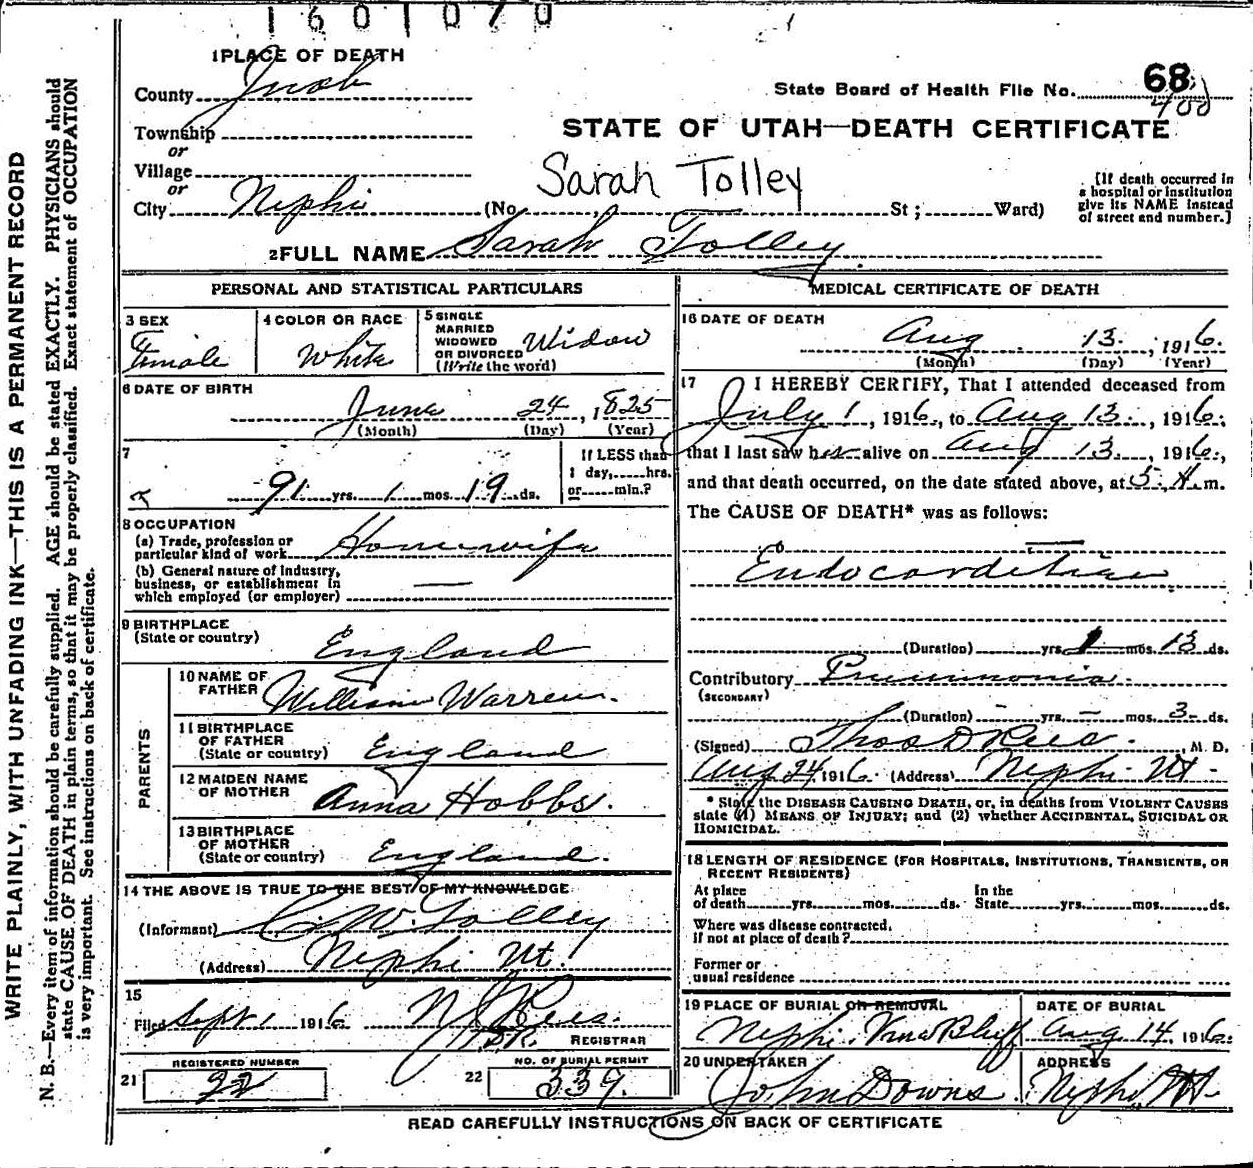 1601070
1 PLACE OF DEATH
County Juab
State Board of Health File No. 68
400
Township
or
STATE OF UTAH—DEATH CERTIFICATE
Village
or
Sarah Tolley
City Nephi (No. St; Ward)
[If death occurred in
a hospital or institution
give its NAME instead
of street and number.]
2 FULL NAME Sarah Tolley
PERSONAL AND STATISTICAL PARTICULARS
3 SEX
Female
4 COLOR OR RACE
White
5 SINGLE
MARRIED
WIDOWED
OR DIVORCED
(Write the word)
Widow
6 DATE OF BIRTH
June 24, 1825
(Month) (Day) (Year)
7
91 yrs. 1 mos. 19 ds.
If LESS than
1 day, hrs.
or min.?
8 OCCUPATION
(a) Trade, profession or
particular kind of work Housewife
(b) General nature of industry,
business, or establishment in
which employed (or employer) —
9 BIRTHPLACE
(State or country) England
PARENTS
10 NAME OF
FATHER William Warren
11 BIRTHPLACE
OF FATHER
(State or country) England
12 MAIDEN NAME
OF MOTHER Anna Hobbs.
13 BIRTHPLACE
OF MOTHER
(State or country) England.
14 THE ABOVE IS TRUE TO THE BEST OF MY KNOWLEDGE
(Informant) C. W. Tolley
(Address) Nephi Ut.
15
Filed Sept 1 1916 Rees.
REGISTRAR
21 REGISTERED NUMBER
22
22 NO. OF BURIAL PERMIT
339.
MEDICAL CERTIFICATE OF DEATH
16 DATE OF DEATH
Aug 13., 1916.
(Month) (Day) (Year)
17 I HEREBY CERTIFY, That I attended deceased from
July 1, 1916, to Aug 13., 1916.
that I last saw her alive on Aug 13., 1916.,
and that death occurred, on the date stated above, at 5 A.m.
The CAUSE OF DEATH* was as follows:
Endocarditis
(Duration) yrs. 1 mos. 13 ds.
Contributory Pneumonia.
(SECONDARY)
(Duration) - yrs. - mos. 3 ds.
(Signed) Thos D Rees., M. D.
Aug 24, 1916. (Address) Nephi Ut -
* State the DISEASE CAUSING DEATH, or, in deaths from VIOLENT CAUSES
state (1) MEANS OF INJURY; and (2) whether ACCIDENTAL, SUICIDAL OR
HOMICIDAL.
18 LENGTH OF RESIDENCE (FOR HOSPITALS, INSTITUTIONS, TRANSIENTS, OR
RECENT RESIDENTS)
At place
of death yrs. mos. ds.
In the
State yrs. mos. ds.
Where was disease contracted,
if not at place of death?
Former or
usual residence
19 PLACE OF BURIAL OR REMOVAL
Nephi Vine Bluff
DATE OF BURIAL
Aug 14. 1916.
20 UNDERTAKER
John Downs
ADDRESS
Nephi Ut
READ CAREFULLY INSTRUCTIONS ON BACK OF CERTIFICATE
WRITE PLAINLY, WITH UNFADING INK—THIS IS A PERMANENT RECORD
N. B.—Every item of information should be carefully supplied. AGE should be stated EXACTLY. PHYSICIANS should
state CAUSE OF DEATH in plain terms, so that it may be properly classified. Exact statement of OCCUPATION
is very important. See instructions on back of certificate.